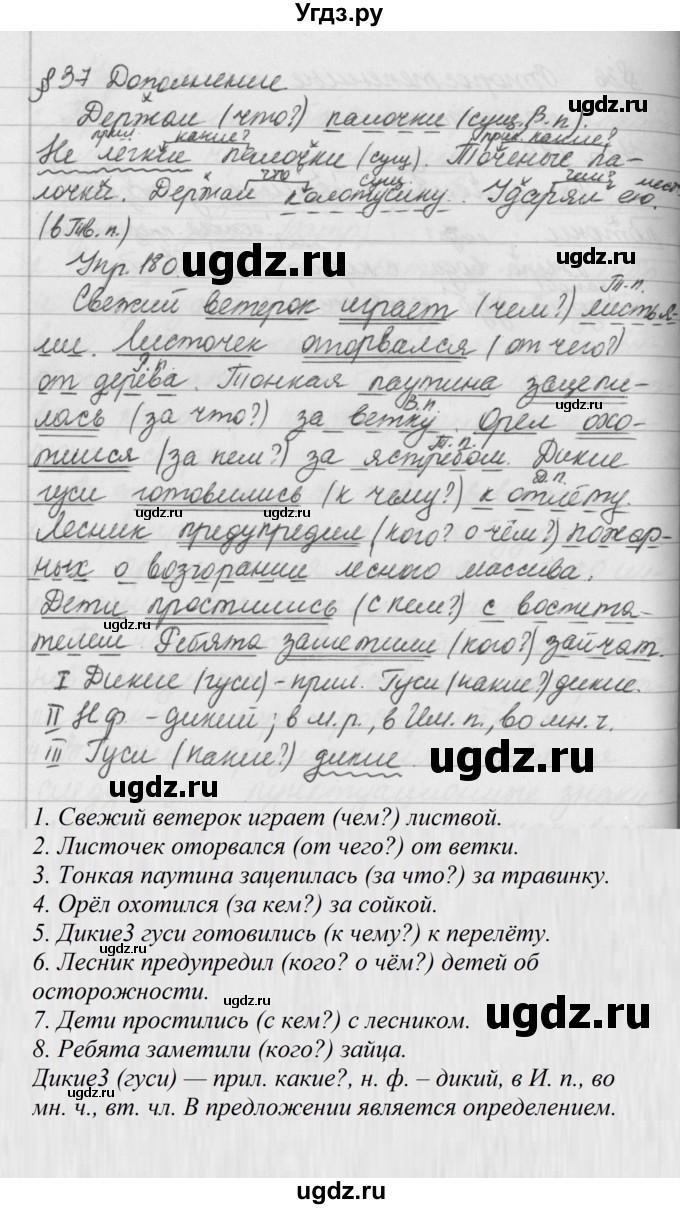 Угдз.ру
§37 Дополнение
Держал (что?) палочки (сущ. В.п).
прил. какие? прил. какие?
Не лёгкие палочки (сущ). Точёные па-
что сущ. чем? мест.
лочки. Держал колотушку. Ударял ею.
(в Тв. п.)
Упр. 180
ugdz.ru
Т.п.
Свежий ветерок играет (чем?) листья-
ми. Листочек оторвался (от чего?)
Р.п
от дерева. Тонкая паутина зацепи-
ugdz.ru
В.п
лась (за что?) за ветку. Орёл охо-
ugdz.ru
Т.п.
тился (за кем?) за ястребом. Дикие
Д.п.
гуси готовились (к чему?) к отлёту.
ugdz.ru ugdz.ru
Лесник предупредил (кого? о чём?) пожар-
ных о возгорании лесного массива.
Дети простились (с кем?) с воспита-
телем. Ребята заметили (кого?) зайчат.
I Дикие (гуси) - прил. Гуси (какие?) дикие.
II Н.ф - дикий; в м.р., в Им.п., во мн.ч.
III Гуси (какие?) дикие.
ugdz.ru
1. Свежий ветерок играет (чем?) листвой.
2. Листочек оторвался (от чего?) от ветки.
3. Тонкая паутина зацепилась (за что?) за травинку.
4. Орёл охотился (за кем?) за сойкой.
ugdz.ru
5. Дикие3 гуси готовились (к чему?) к перелёту.
6. Лесник предупредил (кого? о чём?) детей об
осторожности.
ugdz.ru
7. Дети простились (с кем?) с лесником.
ugdz.ru
8. Ребята заметили (кого?) зайца.
ugdz.ru
Дикие3 (гуси) — прил. какие?, н. ф. – дикий, в И. п., во
мн. ч., вт. чл. В предложении является определением.
ugdz.ru
ugdz.ru